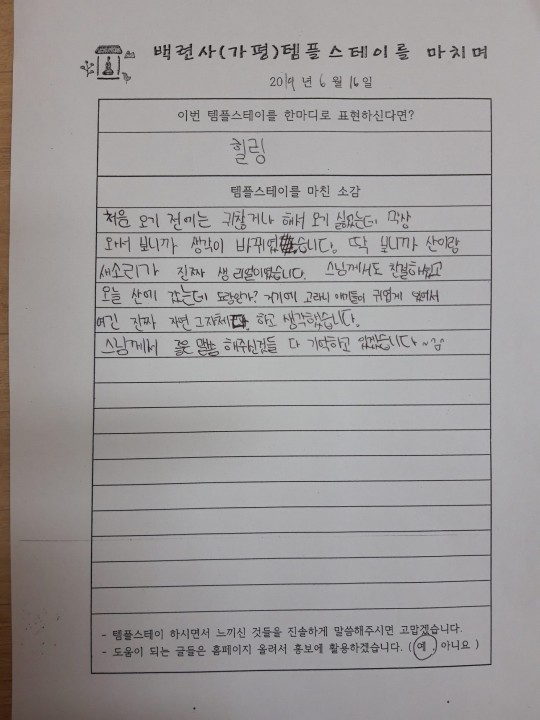 백련사(가평)템플스테이를 마치며
2019 년 6 월 16 일
이번 템플스테이를 한마디로 표현하신다면?
힐링
템플스테이를 마친 소감
처음 오기 전에는 귀찮거나 해서 오기 싫었는데 막상
와서 보니까 생각이 바뀌었습니다. 딱 보니까 산이랑
새소리가 진짜 생 리얼이었습니다. 스님께서도 친절하셨고
오늘 산에 갔는데 도랑인가? 거기에 고라니 애기들이 귀엽게 있어서
여긴 진짜 자연 그자체 하고 생각했습니다.
스님께서 좋은 말씀 해주신것들 다 기억하고 있겠습니다~
- 템플스테이 하시면서 느끼신 것들을 진솔하게 말씀해주시면 고맙겠습니다.
- 도움이 되는 글들은 홈페이지 올려서 홍보에 활용하겠습니다. ( 예 , 아니요 )